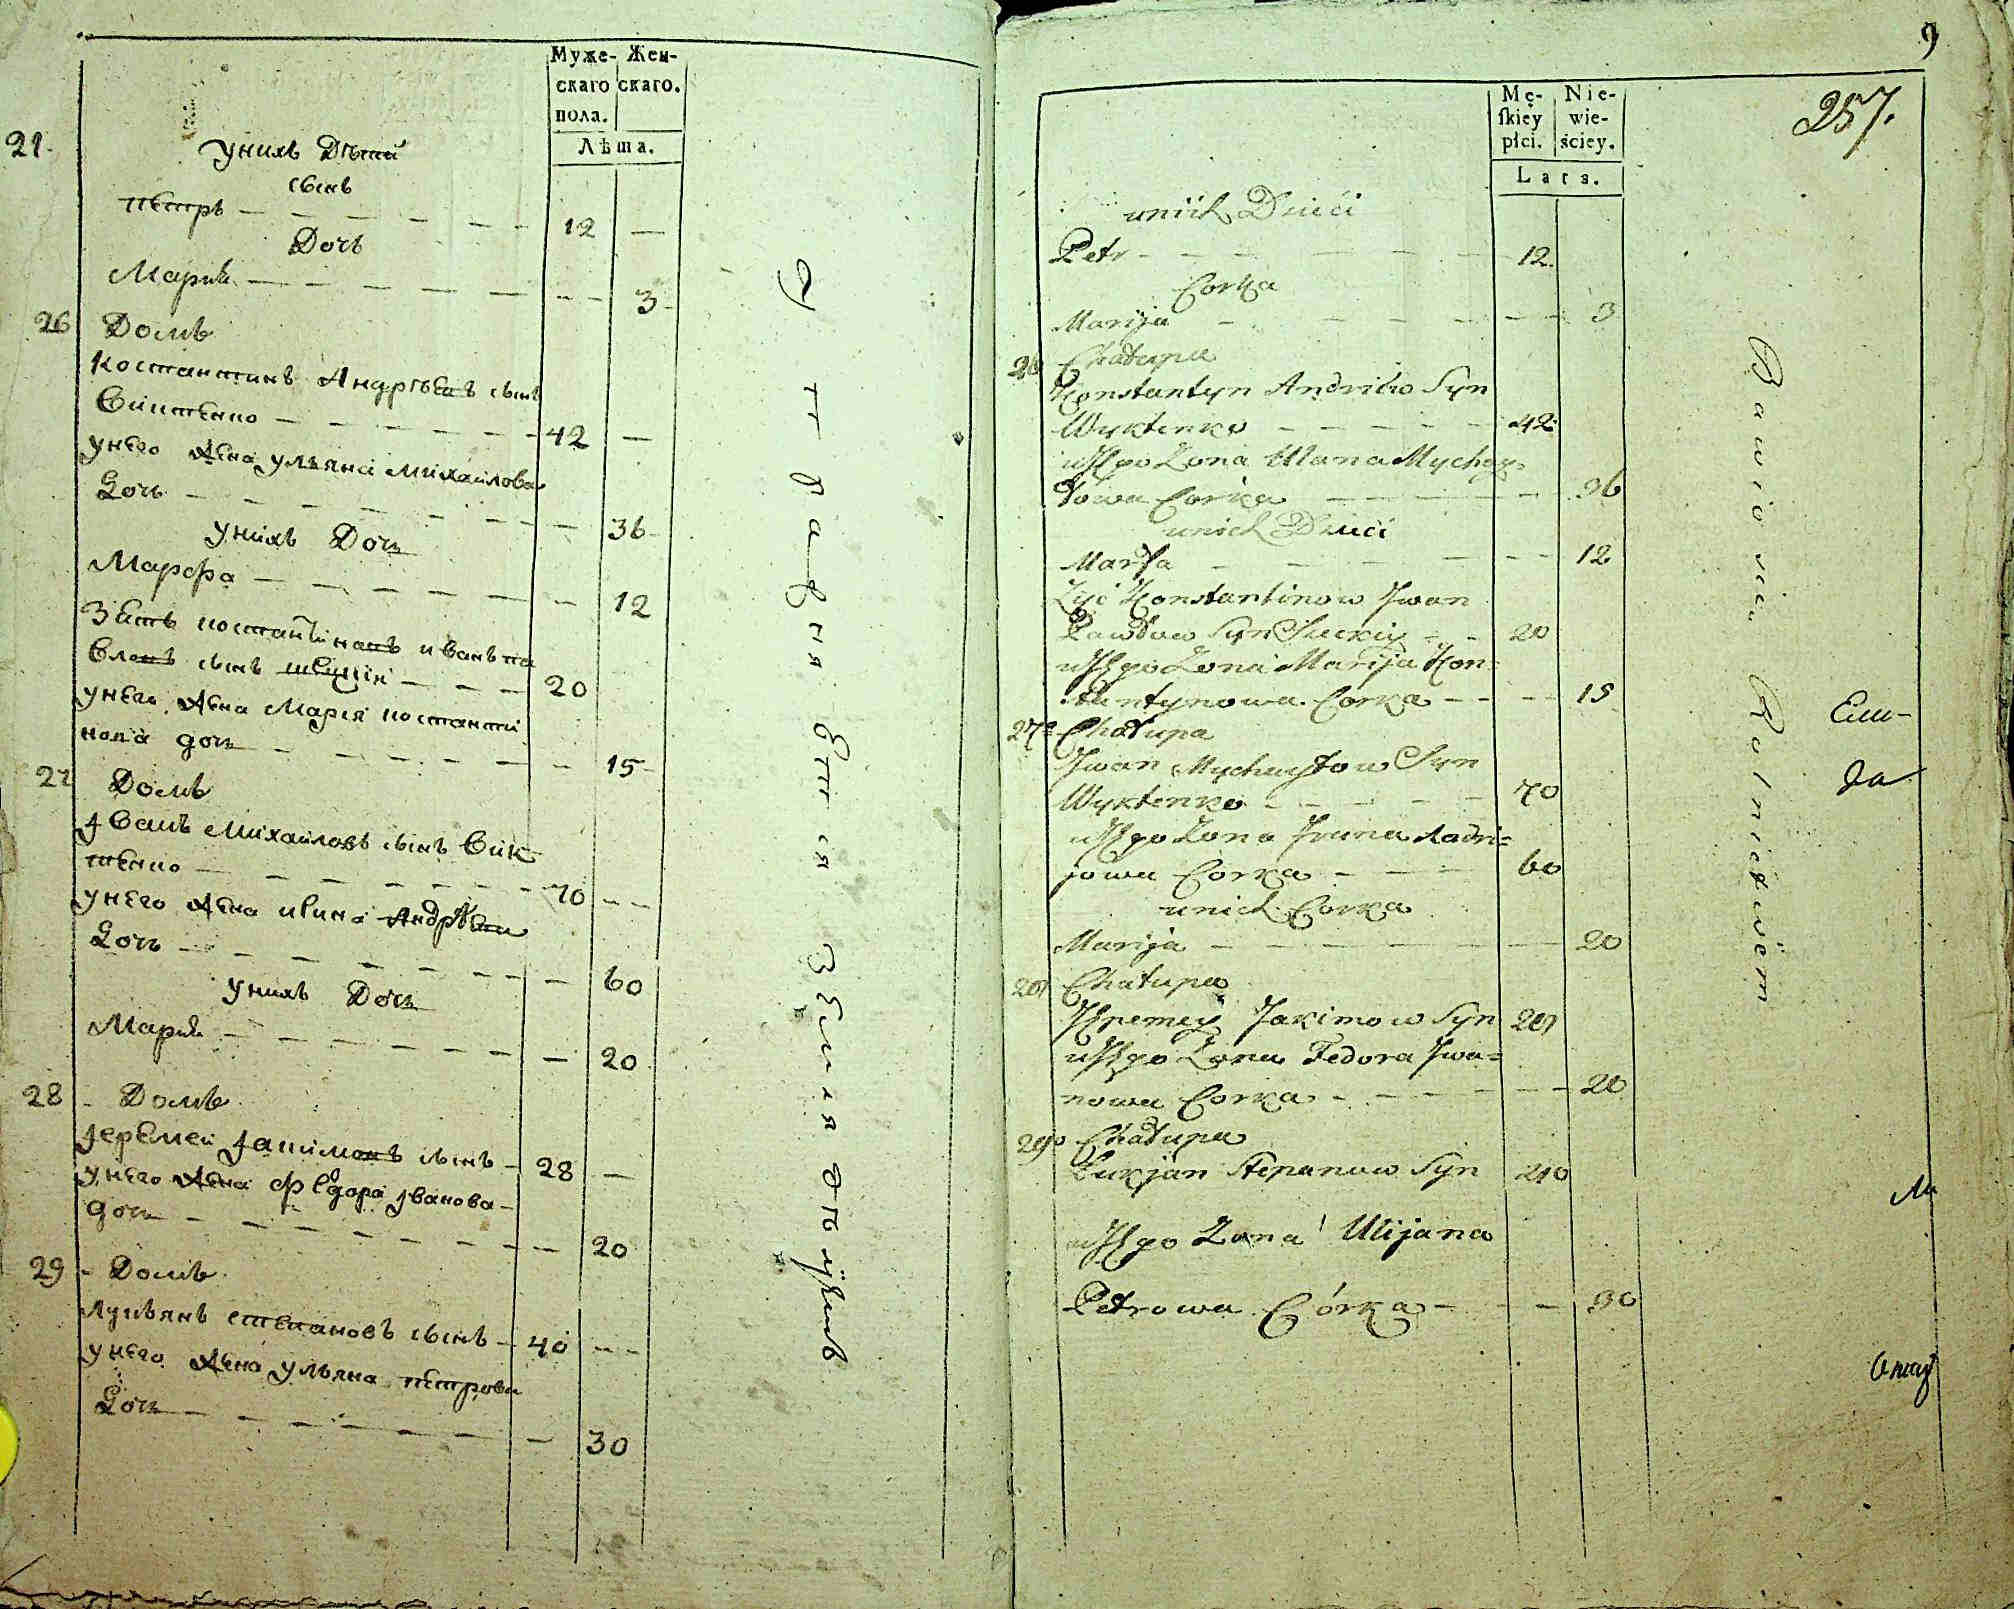 Муже- Жен-
скаго скаго.
пола.
Лѣта.
21.
у нихъ Дѣти
сынъ
петръ — — — — — 12 —
Дочь
Марія — — — — — 3
26 Домъ
Костантинъ Андрѣевъ сынъ
Виктенко — — — — — 42 —
у него жена ульяна михайлова
Дочь — — — — — 36
у нихъ Дочь
Марфа — — — — — 12
Зять костантиновъ иванъ па
вловъ сынъ — — — 20
у него жена Марія костанти
нова дочь — — — — — 15
27 Домъ
Іванъ михайловъ сынъ Вик
тенко — — — — — 70 — —
у него жена ирина Андрѣева
Дочь — — — — — 60
у нихъ Дочь
Марія — — — — — 20
28 Домъ
Іеремей Іакимовъ сынъ — 28 —
у него жена Федора Іванова
дочь — — — — — 20
29 Домъ
Лукьянъ степановъ сынъ — 40 — —
у него жена ульяна петрова
Дочь — — — — — 30
9
257.
Mę- Nie-
skiey wie-
płci. ściey.
Lata.
unich Dzieci
Petr — — — — — 12.
Corka
Marija — — — — — 3
26 Chałupa
Konstantyn Andriiow Syn
Wyktenko — — — — — 42
uJego Zona Ulana Mychay-
łowa Corka — — — — — 36
unich Dzieci
Marfa — — — — — 12
Zięć Konstantinow Jwan
Pawłow Syn — — 20
uJego Zona Marija Kon-
stantynowa Corka — — — 15
27 Chałupa
Jwan Mychayłow Syn
Wyktenko — — — — — 70
uJego Zona Jryna Andri-
jowa Corka — — — 60
unich Corka
Marija — — — — — 20
28 Chałupa
Jeremey Jakimow Syn 28
uJego Zona Fedora Jwa-
nowa Corka — — — — — 20
29 Chałupa
Łukjan Stepanow Syn 40
uJego Zona Ulijana
Petrowa Córka — — — 30
Bawio sie Rolnictwem